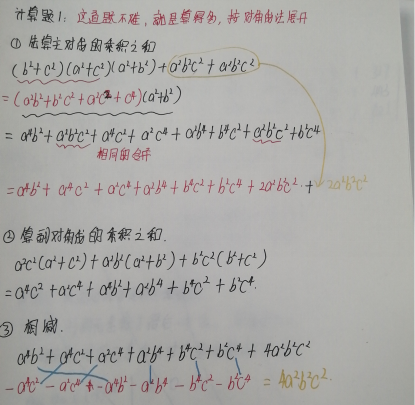 计算题1: 这道题不难,就是算得多,按对角线法展开
① 先算主对角的乘积之和
(b²+c²)(a²+c²)(a²+b²)+a²b²c²+a²b²c²
=(a²b²+b²c²+a²c²+c⁴)(a²+b²)
=a⁴b²+a²b²c²+a⁴c²+a²c⁴+a²b⁴+b⁴c²+a²b²c²+b²c⁴
相同的合并
=a⁴b²+a⁴c²+a²c⁴+a²b⁴+b⁴c²+b²c⁴+2a²b²c²+2a²b²c²
②算副对角的乘积之和.
a²c²(a²+c²)+a²b²(a²+b²)+b²c²(b²+c²)
=a⁴c²+a²c⁴+a⁴b²+a²b⁴+b⁴c²+b²c⁴.
③ 相减.
a⁴b²+a⁴c²+a²c⁴+a²b⁴+b⁴c²+b²c⁴+4a²b²c²
-a⁴c²-a²c⁴-a⁴b²-a²b⁴-b⁴c²-b²c⁴=4a²b²c².